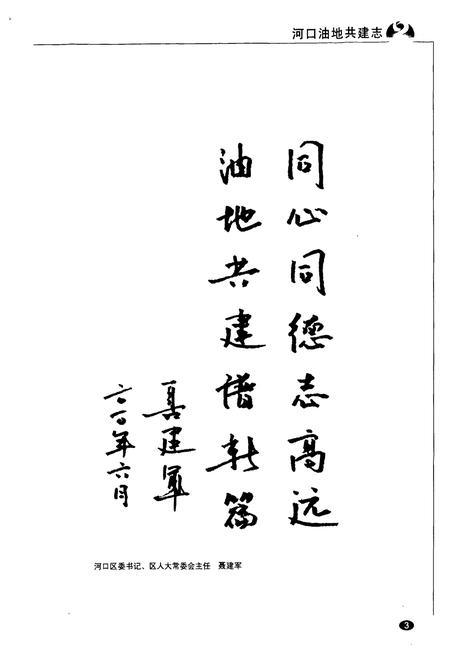 河口油地共建志
同心同德志高远
油地共建谱新篇
聂建军
二〇一〇年六月
河口区委书记、区人大常委会主任 聂建军
3